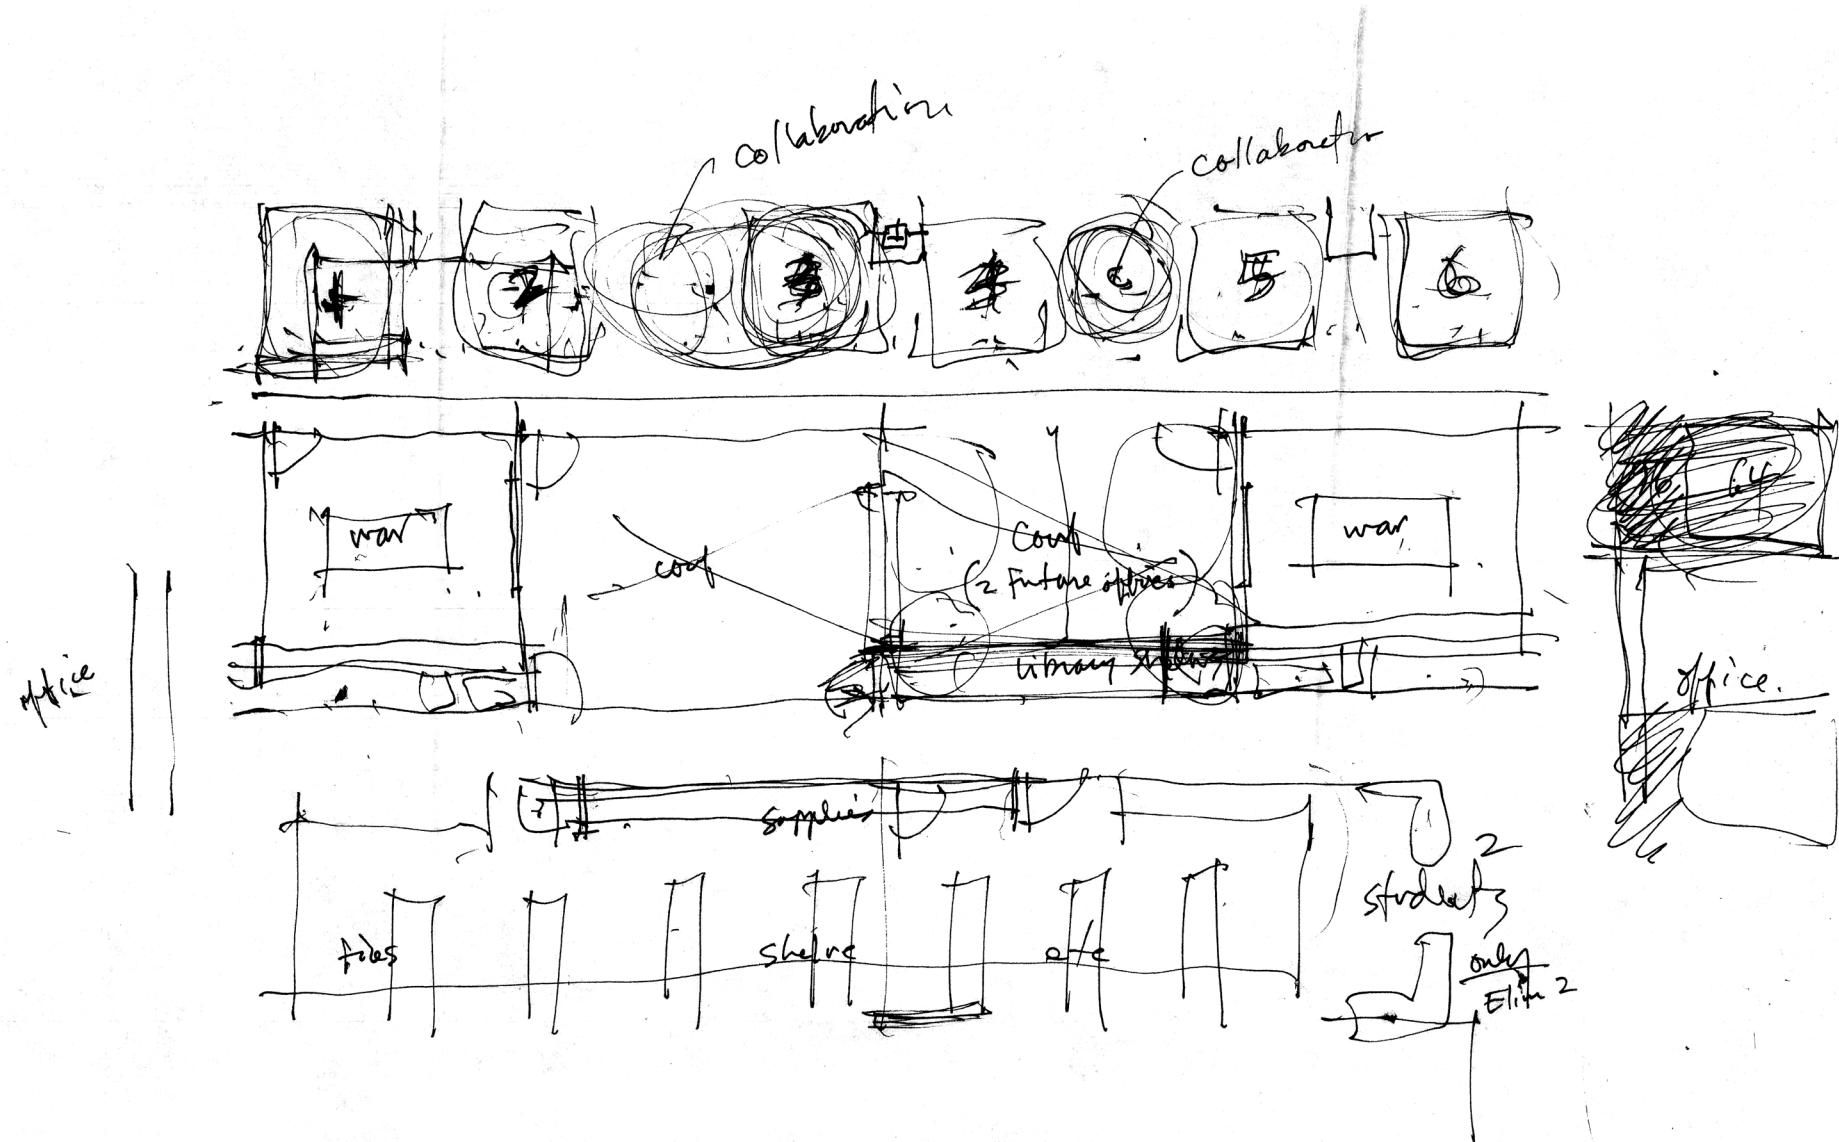 collaboration
collaboratn
1
2
3
4
c
5
6
war
conf
Conf
(2 Future offices)
war
Library shelves
office
office.
supplies
files
shelve
etc
2
students
only
Elim 2